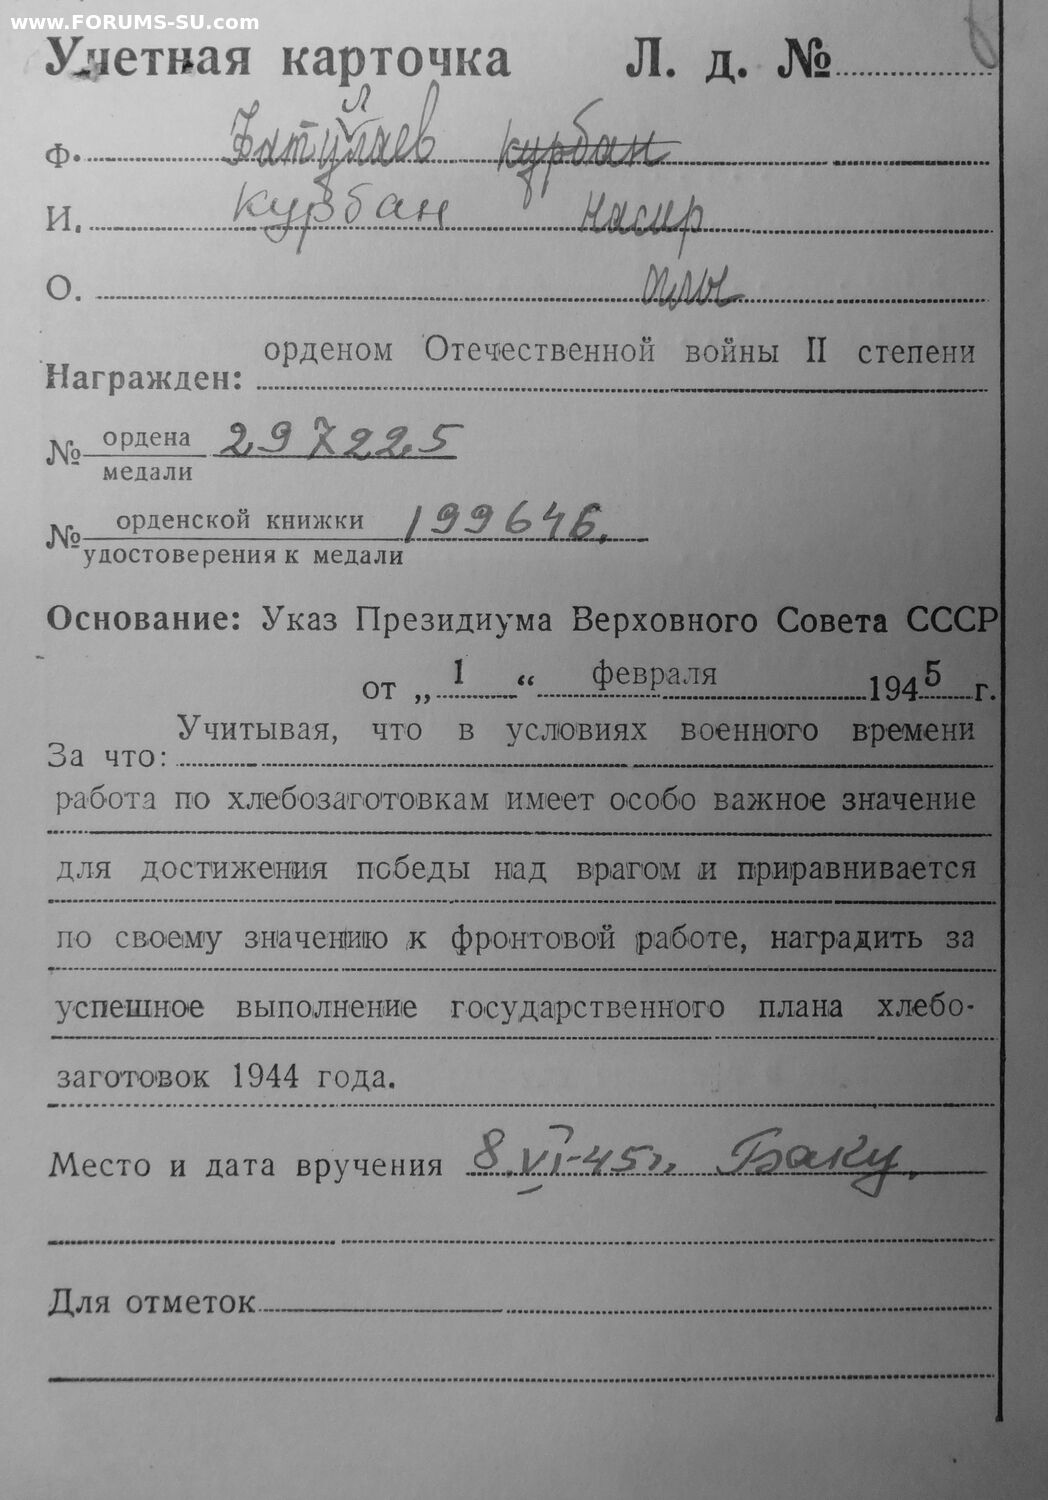 www.FORUMS-SU.com
Учетная карточка Л. д. №
Ф. Батуллаев Курбан
И. Курбан Насир
О. оглы
орденом Отечественной войны II степени
Награжден:
№ ордена 297225
медали
№ орденской книжки 199646.
удостоверения к медали
Основание: Указ Президиума Верховного Совета СССР
от „ 1 “ февраля 1945 г.
Учитывая, что в условиях военного времени
За что:
работа по хлебозаготовкам имеет особо важное значение
для достижения победы над врагом и приравнивается
по своему значению к фронтовой работе, наградить за
успешное выполнение государственного плана хлебо-
заготовок 1944 года.
Место и дата вручения 8.VI-45 г. Баку.
Для отметок